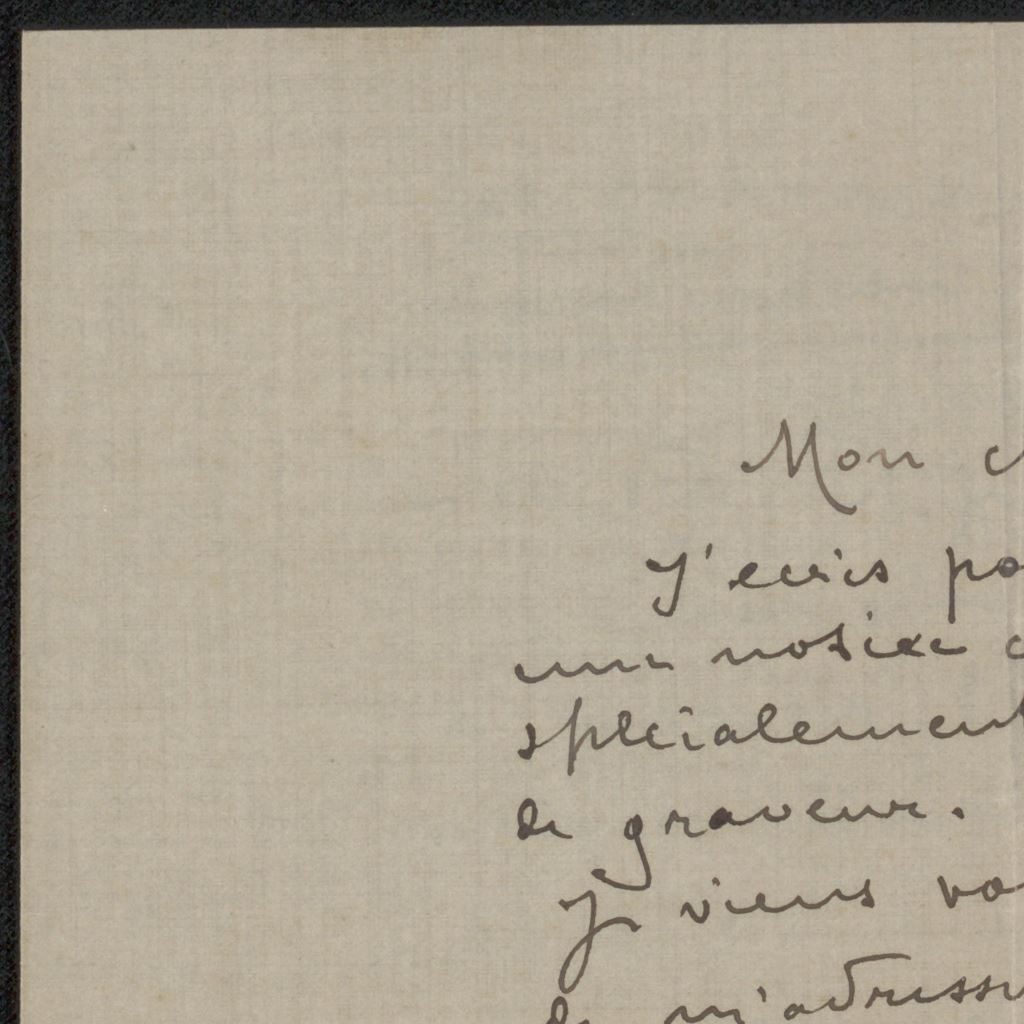 Mon c
J'ecris po
une notice c
specialement
de graveur.
Je viens vo
de m'adresse